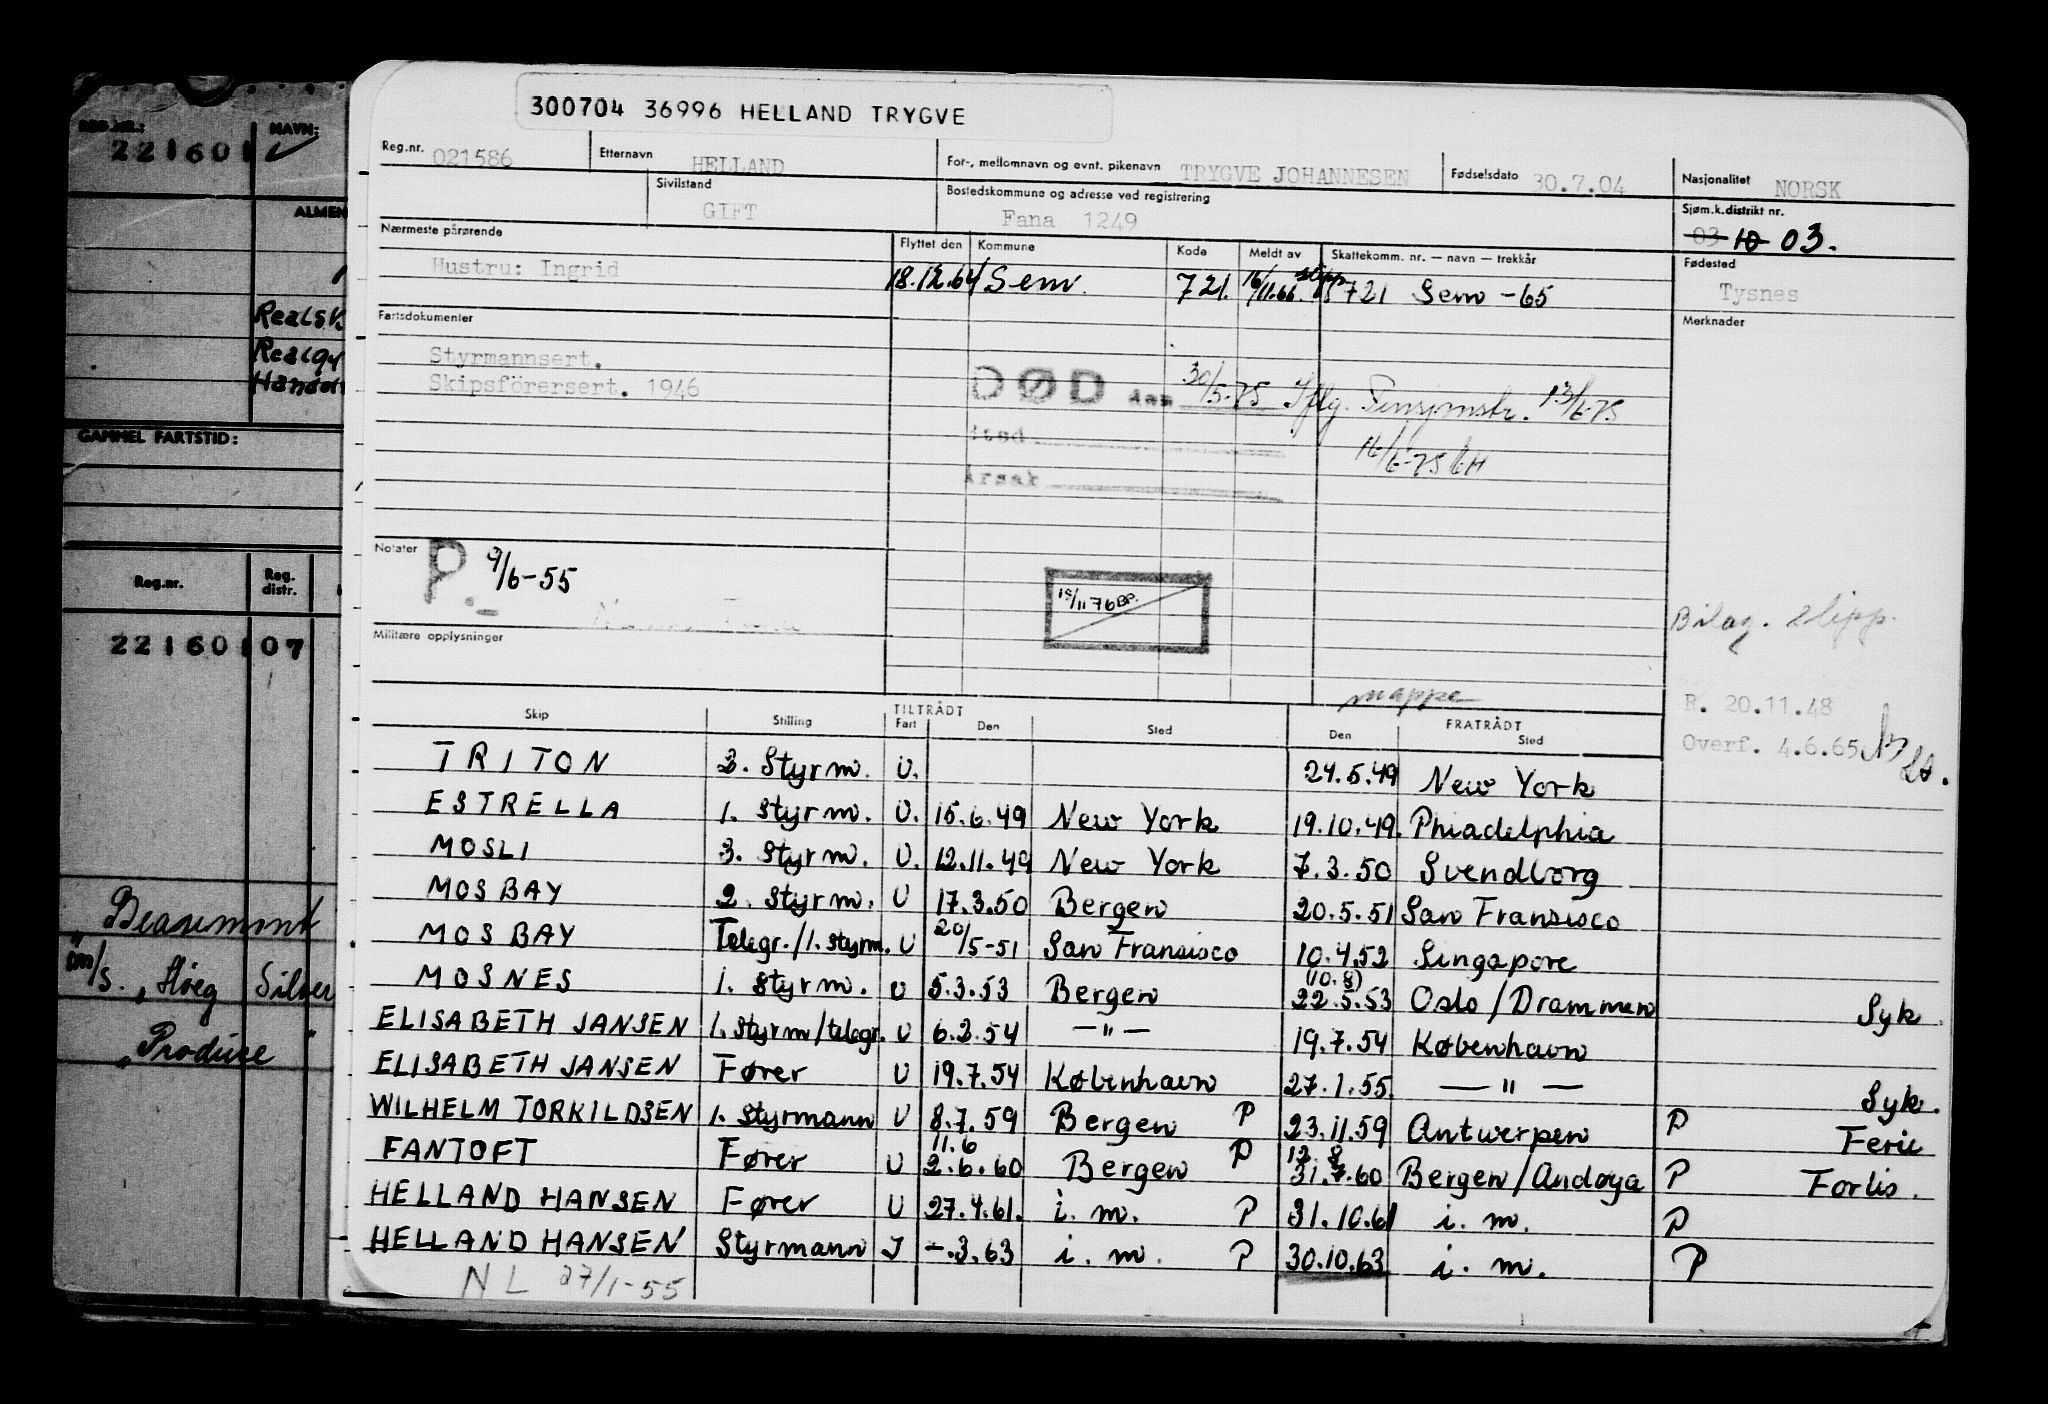 300704 36996 HELLAND TRYGVE
Reg.nr. 021586 Etternavn HELLAND For-, mellomnavn og evnt. pikenavn TRYGVE JOHANNESEN Fødselsdato 30.7.04 Nasjonalitet NORSK
Sivilstand GIFT Bostedskommune og adresse ved registrering Fana 1249 Sjøm.k.distrikt nr. 03 10 03.
Nærmeste pårørende Flyttet den Kommune Kode Meldt av Skattekomm. nr. — navn — trekkår Fødested
Hustru: Ingrid 18.12.64 Sem. 721. 16/11.66 721 Sem -65 Tysnes
Fartsdokumenter Merknader
Styrmannsert.
Skipsförersert. 1946
DØD den 30/5-75 Iflg. Pensjonstr. 13/6-75
sted 16/6-75 GH
Årsak
Notater P. 9/6-55
15/11 76 BP.
Bilag. slipp.
Militære opplysninger
mappe
R. 20.11.48
Overf. 4.6.65
Skip Stilling TILTRÅDT Fart Den Sted FRATRÅDT Den Sted
TRITON 2. Styrm. U. 24.5.49 New York
ESTRELLA 1. Styrm. U. 15.6.49 New York 19.10.49. Phiadelphia
MOSLI 3. Styrm. U. 12.11.49 New York 7.3.50 Svendborg
MOSBAY 2. Styrm. U 17.3.50 Bergen 20.5.51 San Fransisco
MOSBAY Telegr./1. styrm. U 20/5-51 San Fransisco 10.4.52 Singapore
MOSNES 1. Styrm. U 5.3.53 Bergen (10.8) 22.5.53 Oslo/Drammen Syk
ELISABETH JANSEN 1. Styrm/telegr. U 6.2.54 — " — 19.7.54 København
ELISABETH JANSEN Fører U 19.7.54 København 27.1.55. — " — Syk.
WILHELM TORKILDSEN 1. Styrmann U 8.7.59 Bergen P 23.11.59 Antwerpen P Ferie
FANTOFT Fører U 11.6 2.6.60 Bergen P 12.8 31.7.60 Bergen/Andøya P Forlis.
HELLAND HANSEN Fører U 27.4.61. i. m. P 31.10.61 i. m. P
HELLAND HANSEN Styrmann I -.3.63 i. m. P 30.10.63 i. m. P
NL 27/1-55
REG.NR.: NAVN:
221601
ALMEN
Handels
GAMMEL FARTSTID:
Reg.nr. Reg. distr.
221601 07
"Beaumont
m/s. "Høeg Silver
"Produce "